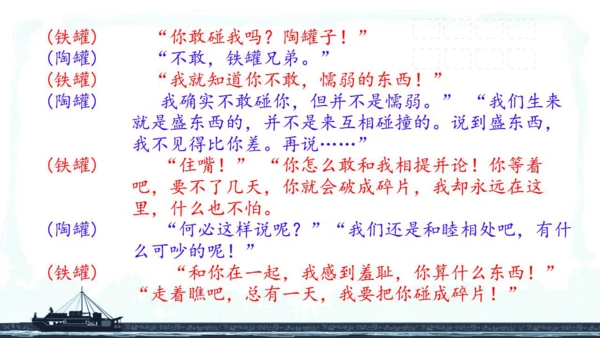 (铁罐) “你敢碰我吗?陶罐子!”
(陶罐) “不敢,铁罐兄弟。”
(铁罐) “我就知道你不敢,懦弱的东西!”
(陶罐) 我确实不敢碰你,但并不是懦弱。” “我们生来
就是盛东西的,并不是来互相碰撞的。说到盛东西,
我不见得比你差。再说……”
(铁罐) “住嘴!” “你怎么敢和我相提并论!你等着
吧,要不了几天,你就会破成碎片,我却永远在这
里,什么也不怕。
(陶罐) “何必这样说呢?”“我们还是和睦相处吧,有什
么可吵的呢!”
(铁罐) “和你在一起,我感到羞耻,你算什么东西!”
“走着瞧吧,总有一天,我要把你碰成碎片!”